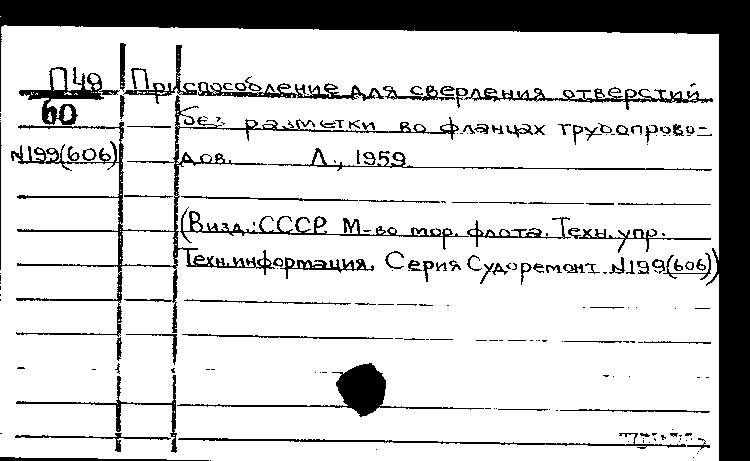 П49 Приспособление для сверления отверстий
60 без разметки во фланцах трубопрово-
N199(606) дов. Л., 1959
(В изд.: СССР М-во мор. флота. Техн. упр.
Техн. информация. Серия Судоремонт N199(606))